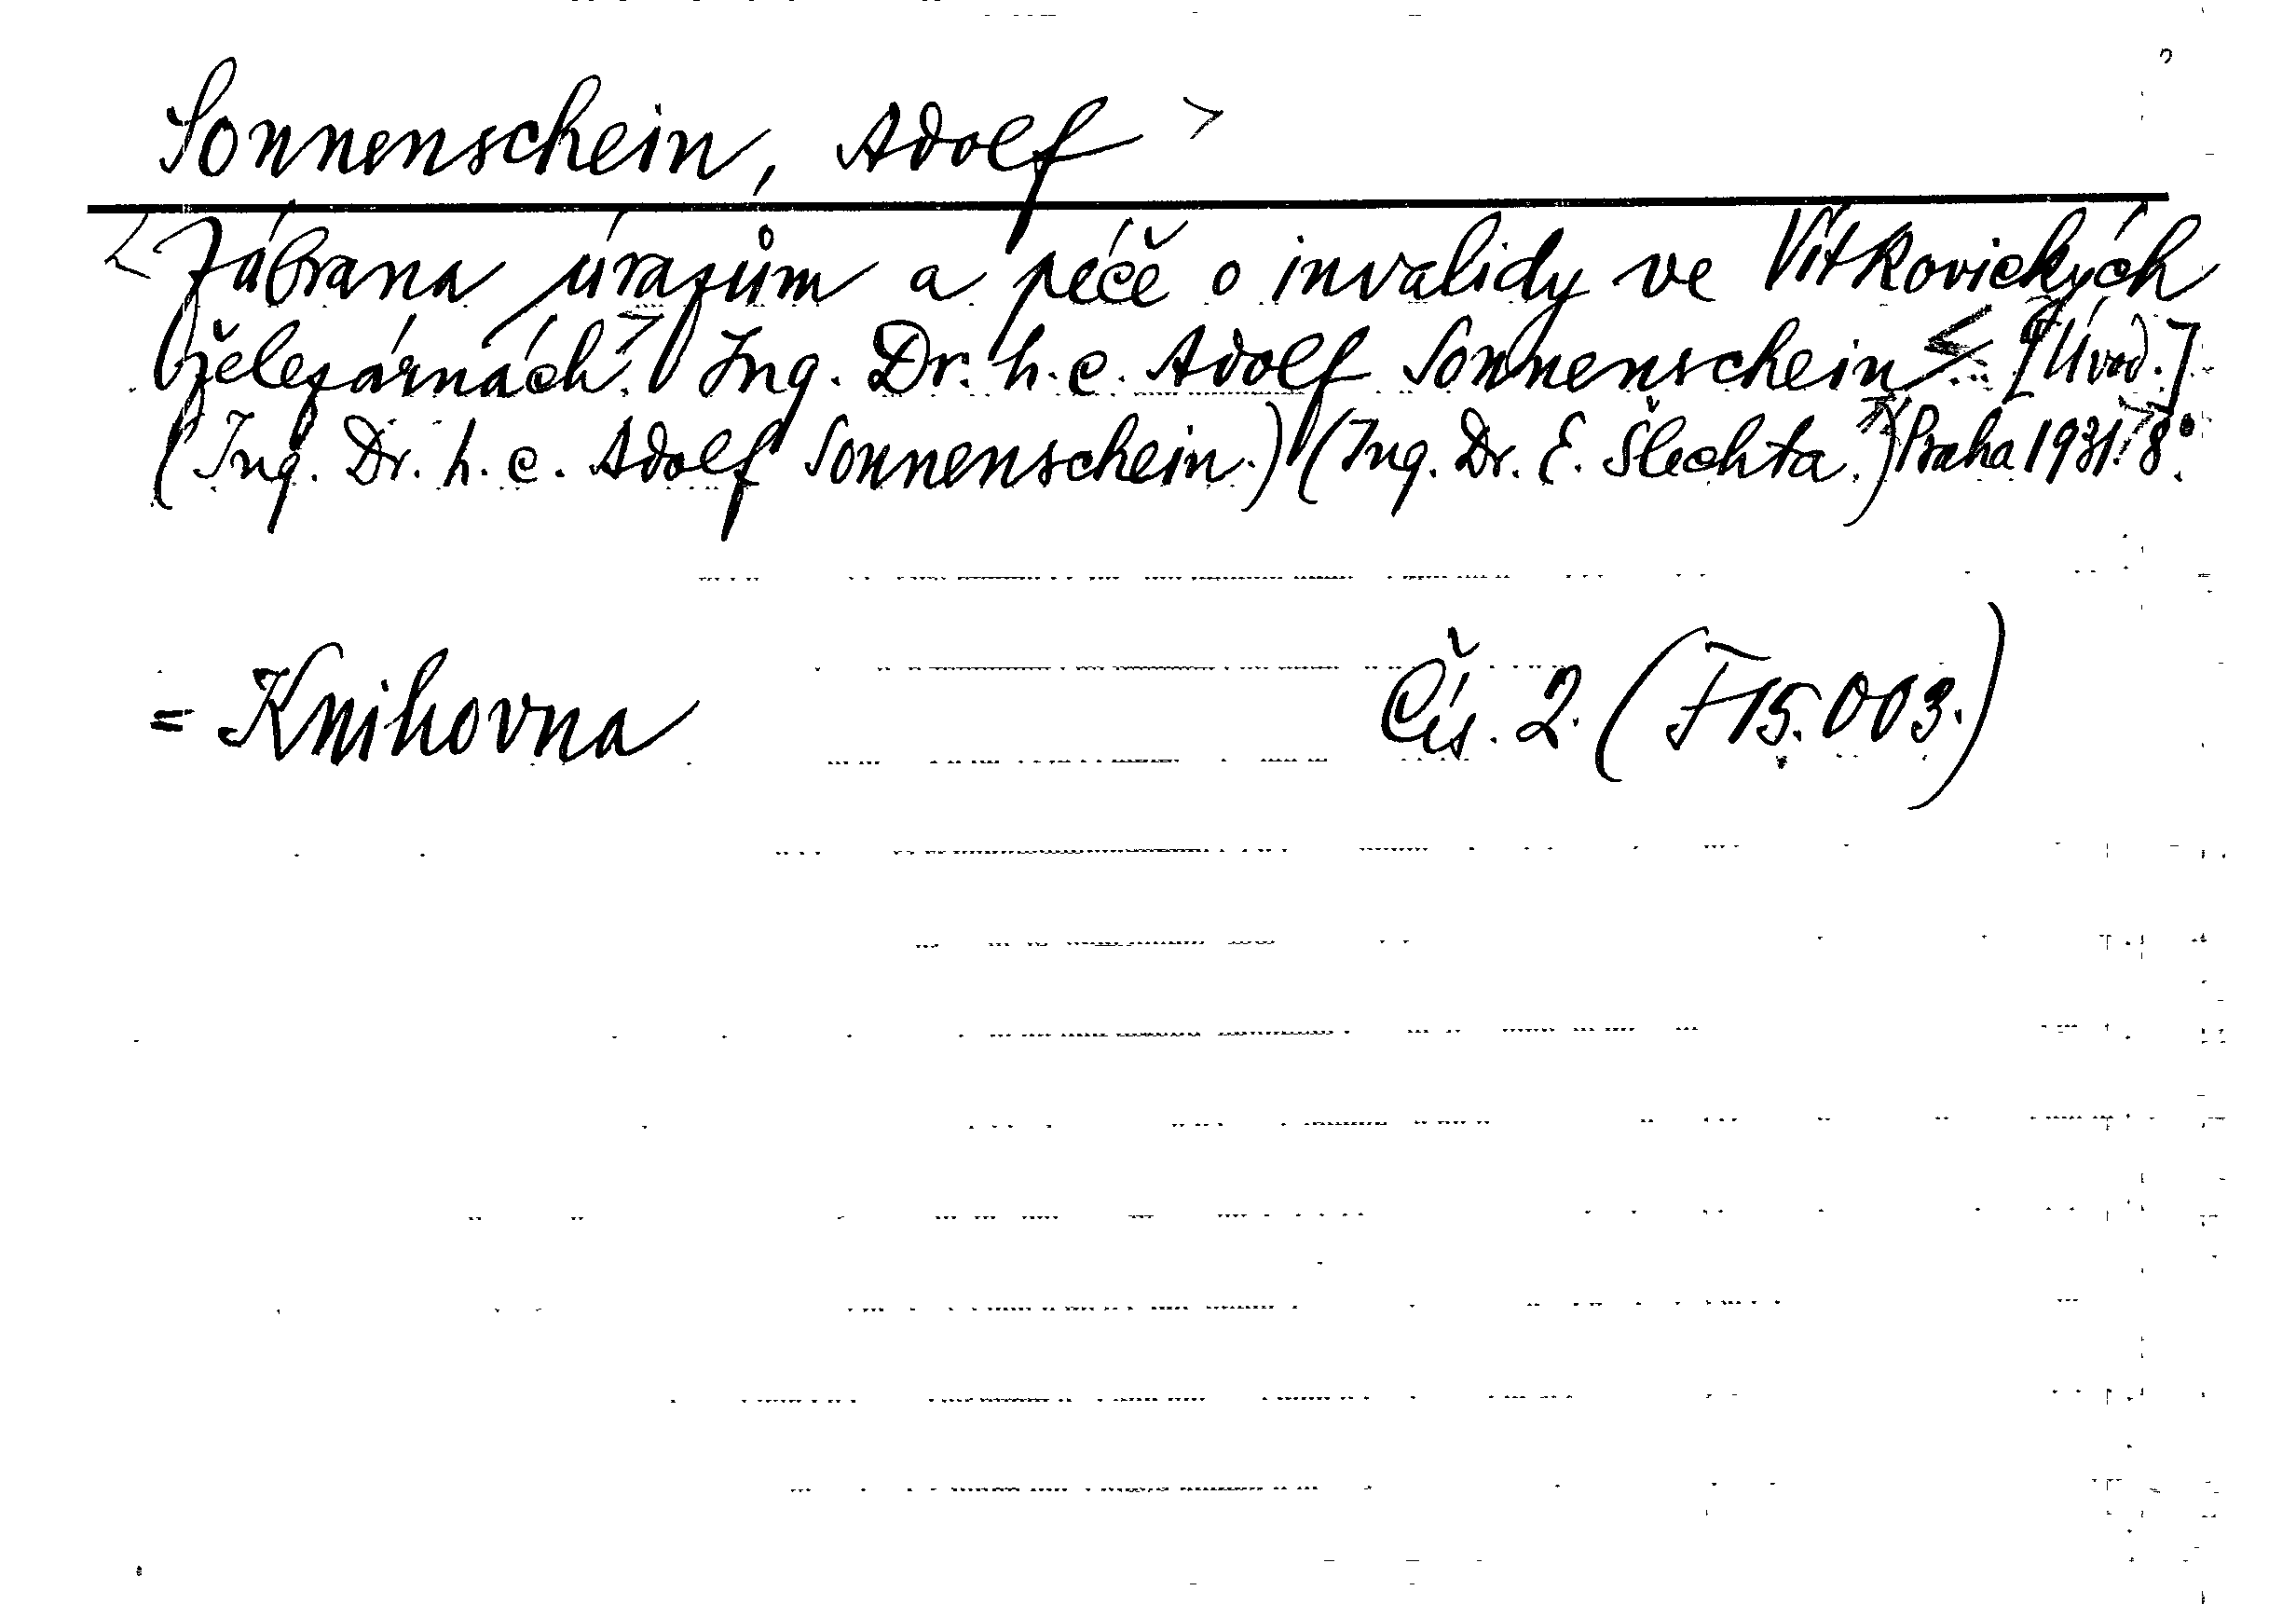 Sonnenschein, Adolf >
< Zábrana úrazům a péče o invalidy ve Vítkovických
železárnách. > Ing. Dr. h. c. Adolf Sonnenschein < [Úvod.]
(Ing. Dr. h. c. Adolf Sonnenschein.) (Ing. Dr. E. Šlechta.) > Praha 1931. > 8°.
= Knihovna Čís. 2. (F 15.003.)